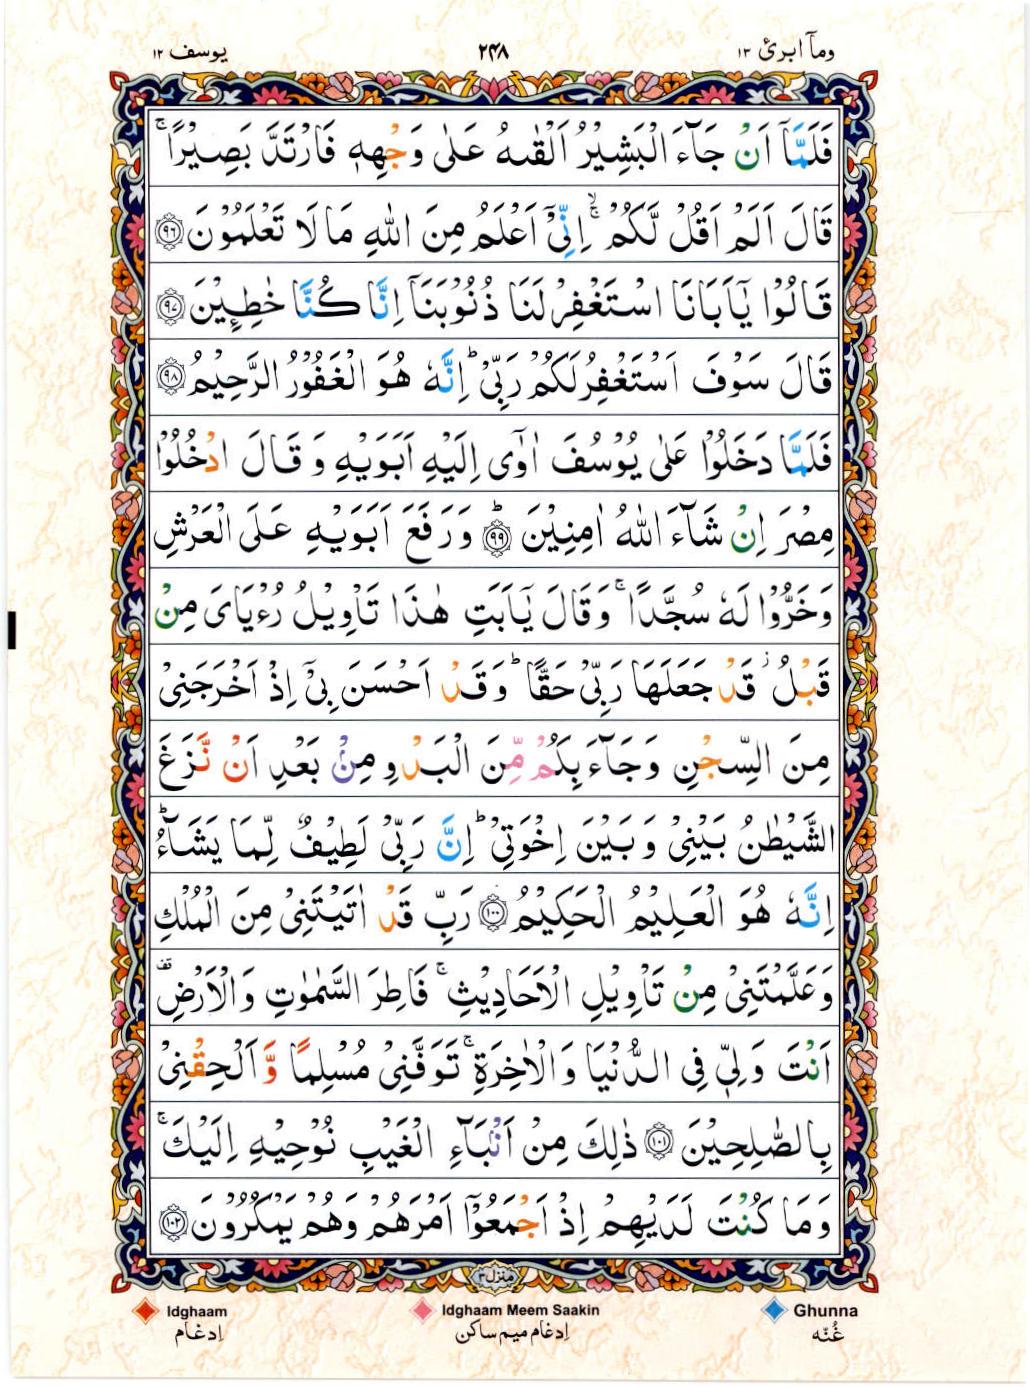 وما ابرئ ١٣
٢٤٨
يوسف ١٢
فَلَمَّاۤ اَنْ جَآءَ الْبَشِيْرُ اَلْقٰىهُ عَلٰى وَجْهِهٖ فَارْتَدَّ بَصِيْرًا ۚ
قَالَ اَلَمْ اَقُلْ لَّكُمْ ۚۙ اِنِّىْۤ اَعْلَمُ مِنَ اللّٰهِ مَا لَا تَعْلَمُوْنَ ﴿٩٦﴾
قَالُوْا يٰۤاَبَانَا اسْتَغْفِرْ لَنَا ذُنُوْبَنَاۤ اِنَّا كُنَّا خٰطِـِٕيْنَ ﴿٩٧﴾
قَالَ سَوْفَ اَسْتَغْفِرُ لَكُمْ رَبِّىْ ؕ اِنَّهٗ هُوَ الْغَفُوْرُ الرَّحِيْمُ ﴿٩٨﴾
فَلَمَّا دَخَلُوْا عَلٰى يُوْسُفَ اٰوٰٓى اِلَيْهِ اَبَوَيْهِ وَقَالَ ادْخُلُوْا
مِصْرَ اِنْ شَآءَ اللّٰهُ اٰمِنِيْنَ ؕ ﴿٩٩﴾ وَرَفَعَ اَبَوَيْهِ عَلَى الْعَرْشِ
وَخَرُّوْا لَهٗ سُجَّدًا ۚ وَقَالَ يٰۤاَبَتِ هٰذَا تَاْوِيْلُ رُءْيَاىَ مِنْ
قَبْلُ ؗ قَدْ جَعَلَهَا رَبِّىْ حَقًّا ؕ وَقَدْ اَحْسَنَ بِىْۤ اِذْ اَخْرَجَنِىْ
مِنَ السِّجْنِ وَجَآءَ بِكُمْ مِّنَ الْبَدْوِ مِنْۢ بَعْدِ اَنْ نَّزَغَ
الشَّيْطٰنُ بَيْنِىْ وَبَيْنَ اِخْوَتِىْ ؕ اِنَّ رَبِّىْ لَطِيْفٌ لِّمَا يَشَآءُ ؕ
اِنَّهٗ هُوَ الْعَلِيْمُ الْحَكِيْمُ ﴿١٠٠﴾ رَبِّ قَدْ اٰتَيْتَنِىْ مِنَ الْمُلْكِ
وَعَلَّمْتَنِىْ مِنْ تَاْوِيْلِ الْاَحَادِيْثِ ۚ فَاطِرَ السَّمٰوٰتِ وَالْاَرْضِ قف
اَنْتَ وَلِىّٖ فِى الدُّنْيَا وَالْاٰخِرَةِ ۚ تَوَفَّنِىْ مُسْلِمًا وَّاَلْحِقْنِىْ
بِالصّٰلِحِيْنَ ﴿١٠١﴾ ذٰلِكَ مِنْ اَنْۢبَآءِ الْغَيْبِ نُوْحِيْهِ اِلَيْكَ ۚ
وَمَا كُنْتَ لَدَيْهِمْ اِذْ اَجْمَعُوْۤا اَمْرَهُمْ وَهُمْ يَمْكُرُوْنَ ﴿١٠٢﴾
منزل ٣
Ghunna
Idghaam Meem Saakin
Idghaam
غُنّه
اِدغام میم ساکن
اِدغام